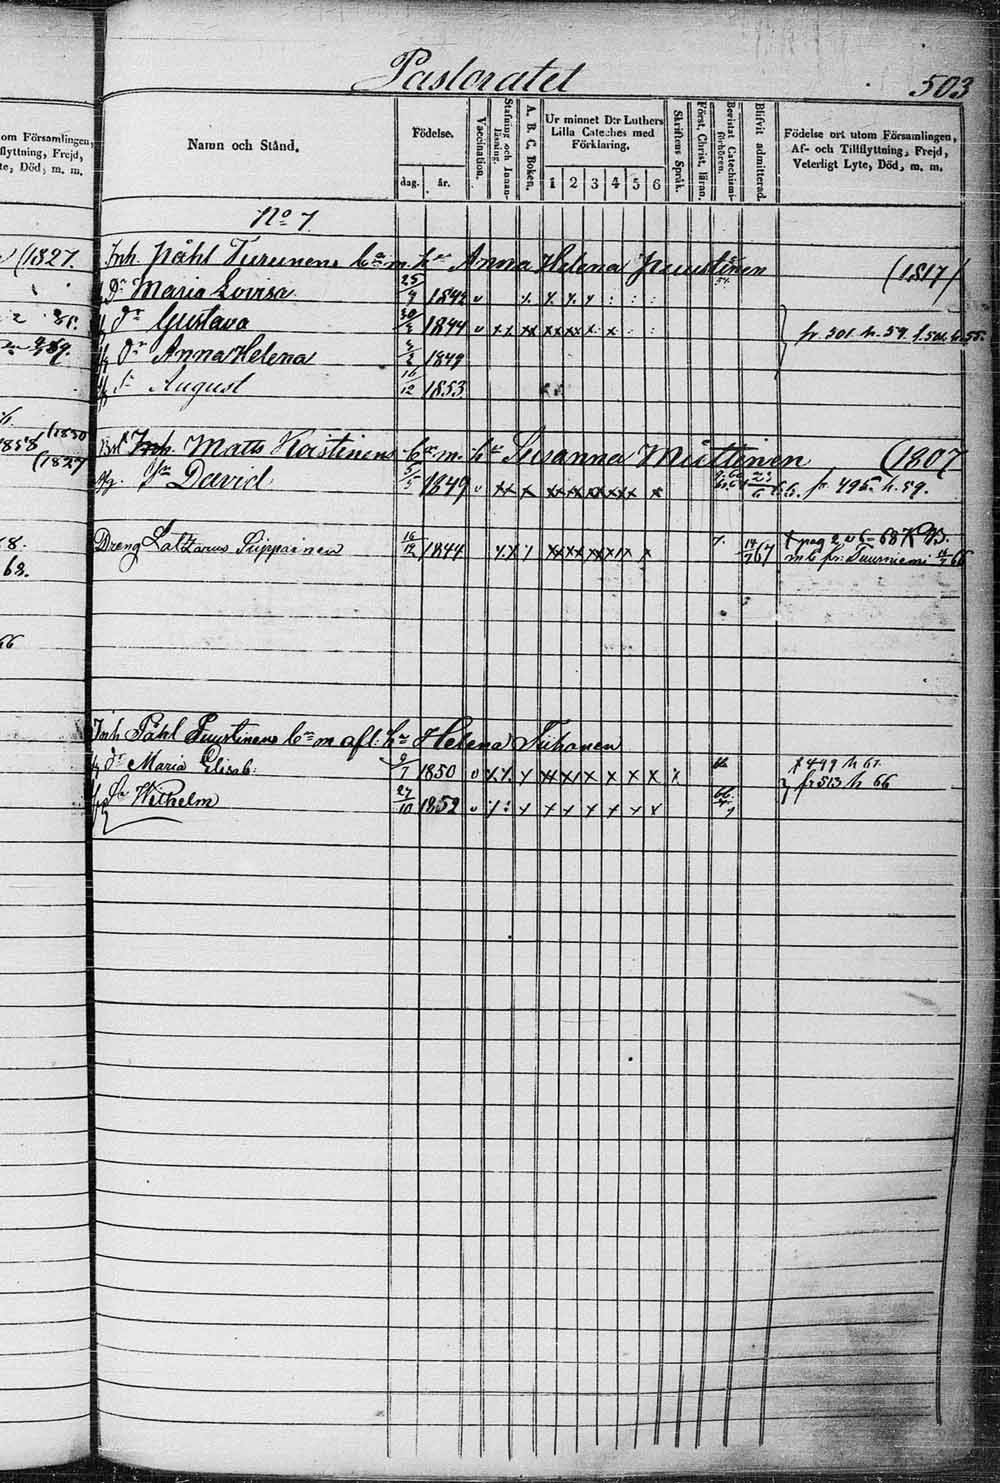 Pastoratet
503
Namn och Stånd.
Födelse.
dag.
år.
Vaccination.
Stafning och Innan-läsning.
A. B. C. Boken.
Ur minnet D:r Luthers
Lilla Cateches med
Förklaring.
1 2 3 4 5 6
Skriftens Språk.
Först. Christ. läran.
Bevistat Catechismi-förhören.
Blifvit admitterad.
Födelse ort utom Församlingen,
Af- och Tillflyttning, Frejd,
Veterligt Lyte, Död, m. m.
om Församlingen,
flyttning, Frejd,
te, Död, m. m.
No 7
(1827.
Inh. Påhl Turunens b:n m. h:u Anna Helena Puustinen (1817)
D:r Maria Lovisa 25/9 1842
d:r Gustava 1844 fr. 501 h. 59.
d:r Anna Helena 1849
August 16/12 1853
Inh. Matts Koistinens b:n m. h:u Susanna Miettinen (1807
David 5/5 1849 fr. 495. h. 59.
Dreng Lattzarus Piippoinen 16/12 1844 14/7 67
1830
1858
(1827
62.
66
Inh Påhl Puustinens b:n m afl. h:u Helena Tiihonen
d:r Maria Elisab: 9/7 1850 499 h 61.
Wilhelm 27/10 1852 66 fr 513 h 66